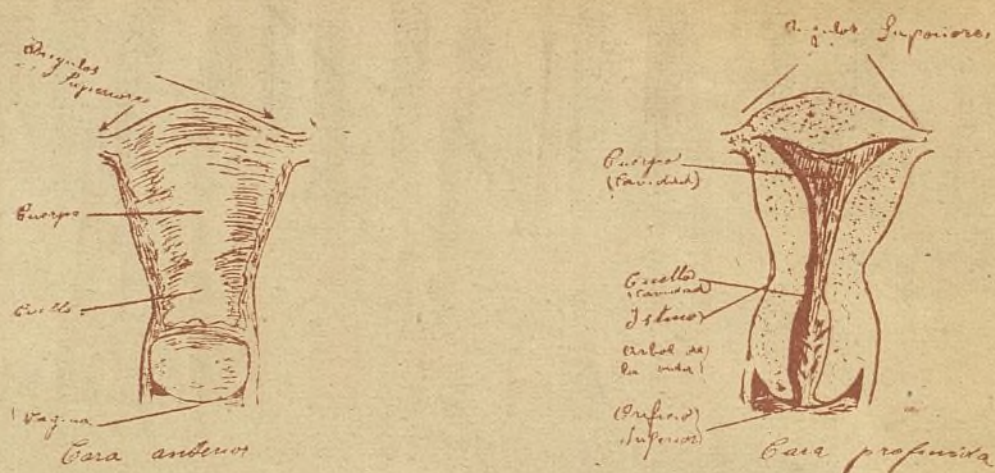 Angulos
Superiores
Cuerpo
Cuello
Vagina
Cara anterior
Angulos Superiores
Cuerpo
(Cavidad)
Cuello
(Cavidad)
Istmo
Arbol de
la vida
Orificio
Superior
Cara profunda